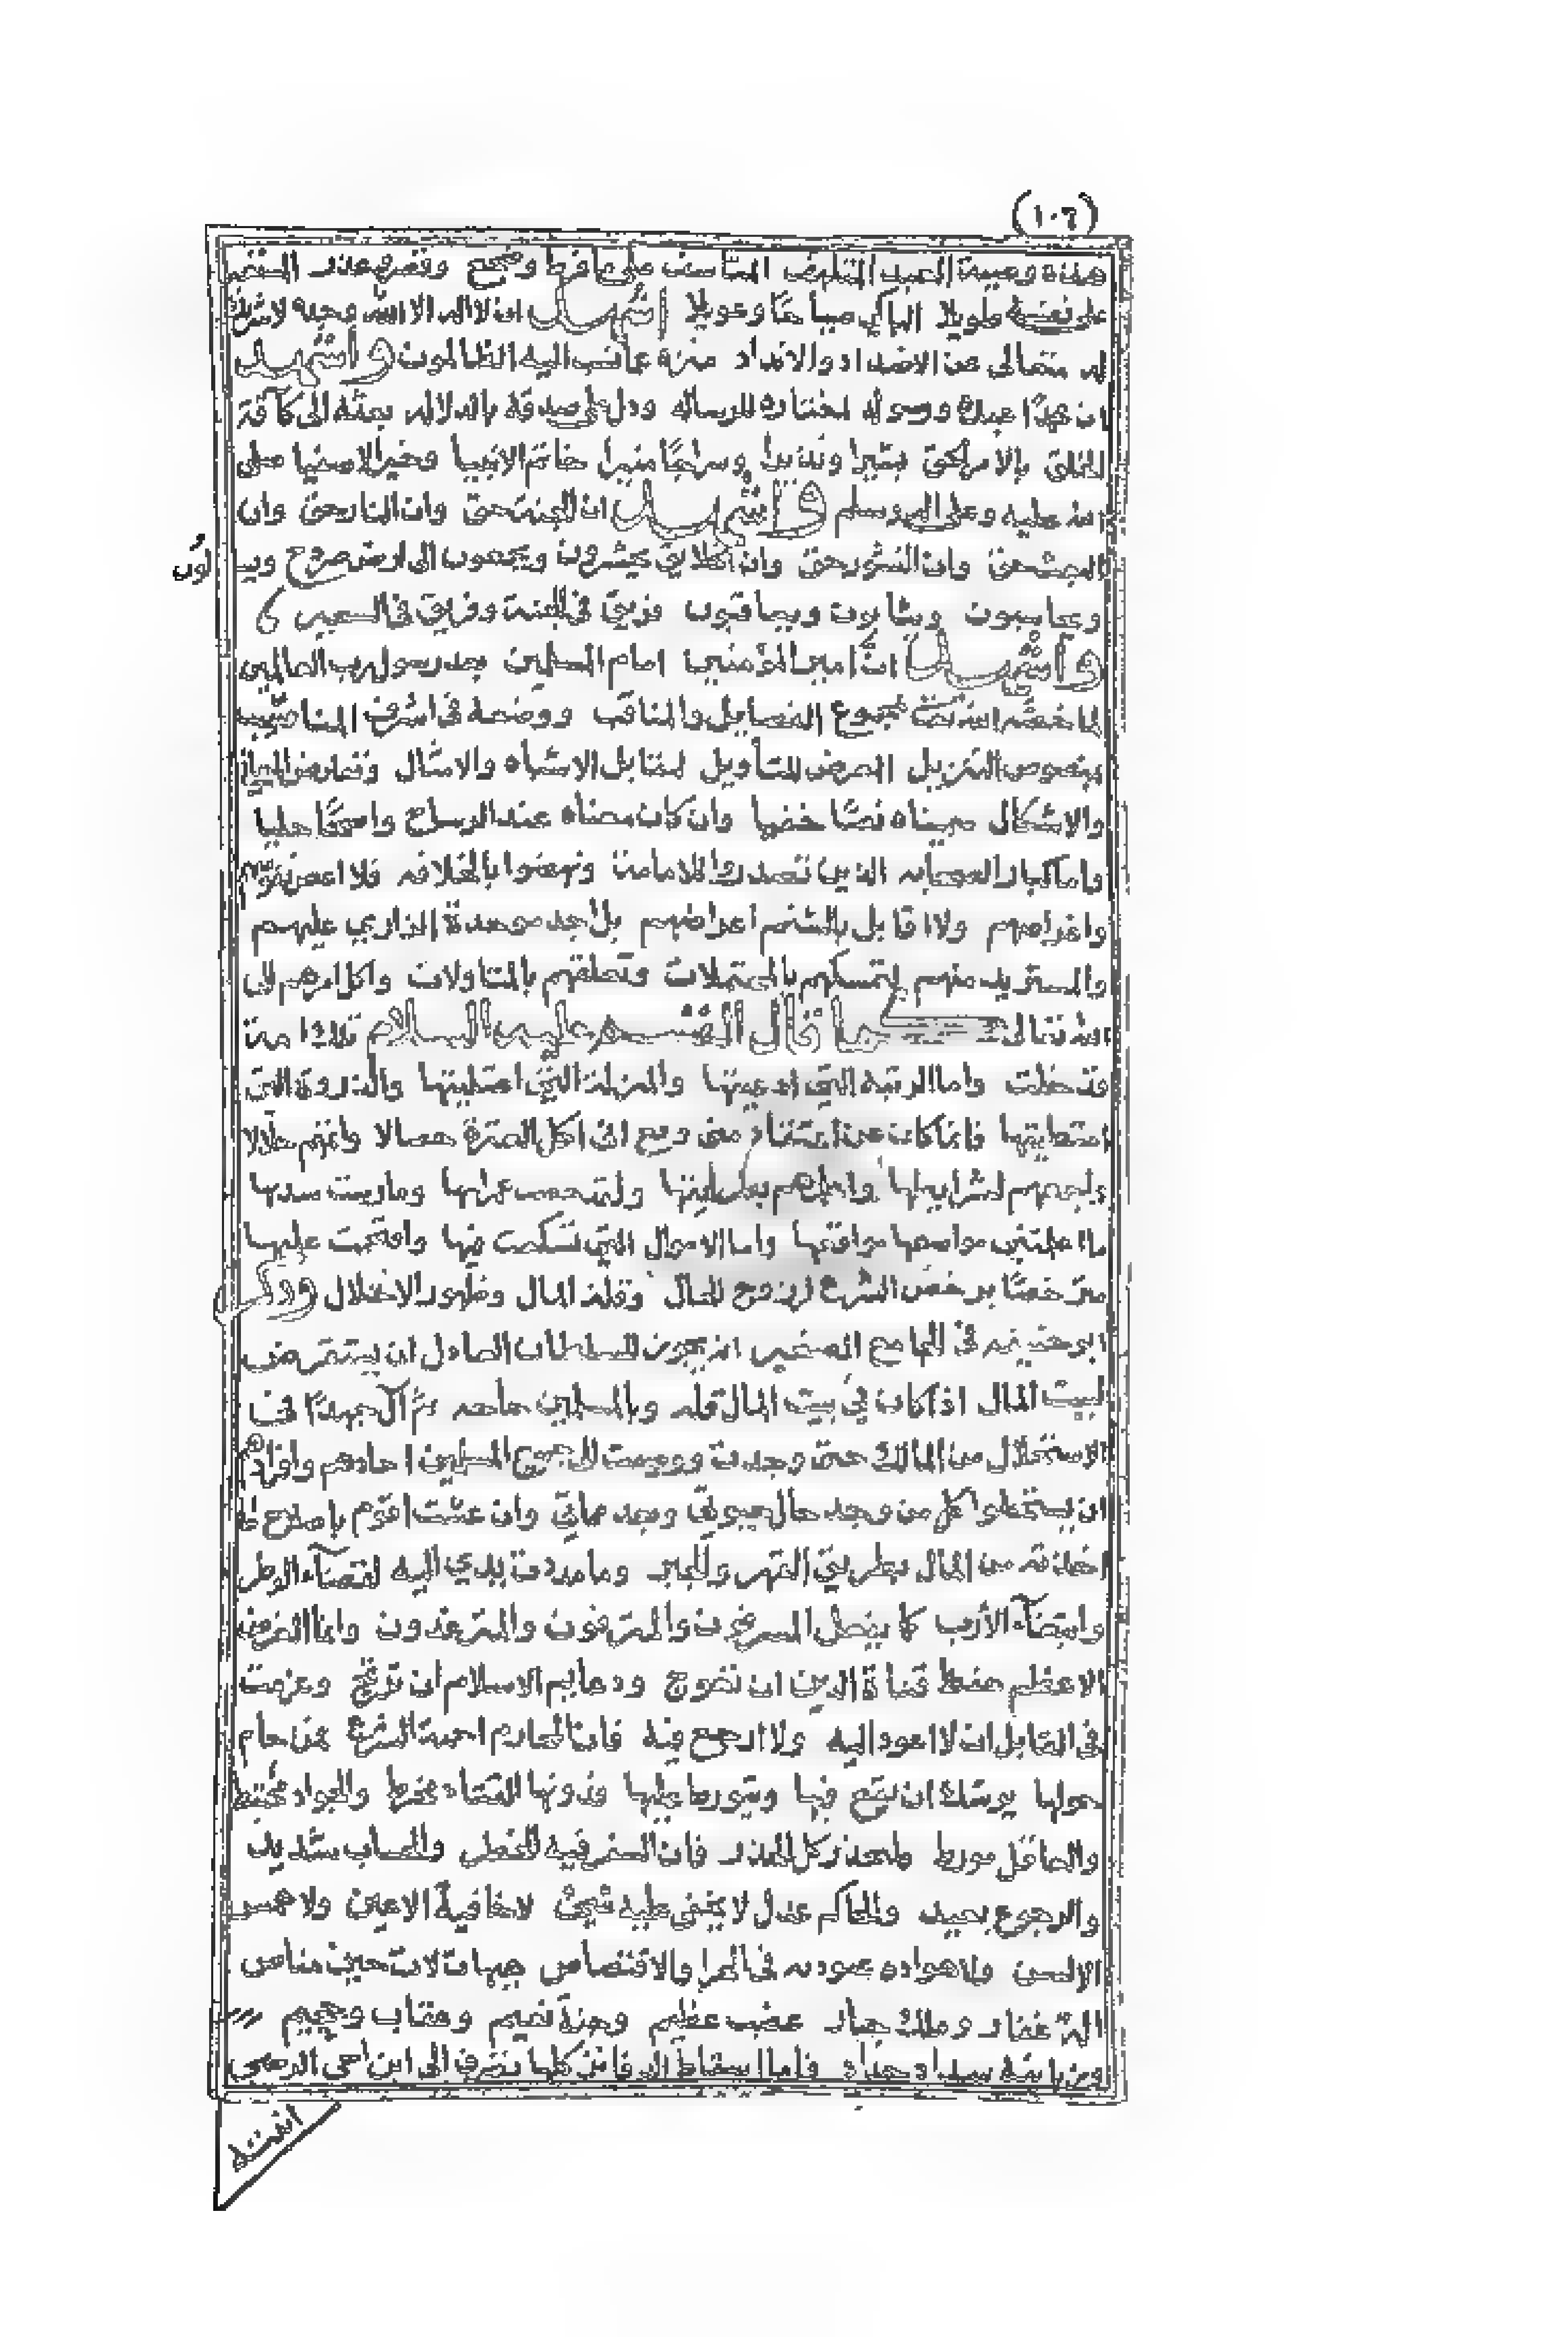 (١٠٦)
هذه وصية العبد المتلهف المتاسف على ما فرط وضيع وقصر عند
على نفسه طويلا الباكي صباحا وعويلا اشهد ان لا اله الا الله وحده لا شريك
له متعالى عن الاضداد والانداد منزه عما نسب اليه الظالمون واشهد
ان محمدا عبده ورسوله اختاره للرساله ودل على صدقه بالدلاله بعثه الى كآفة
الخلق بالامر الحق بشيرا ونذيرا وسراجا منيرا خاتم الانبيا وخير الاصفيا صلى
الله عليه وعلى اله وسلم واشهد ان الجنة حق وان النار حق وان
البعث حق وان النشور حق وان الخلايق يحشرون ويجمعون الى ارض
لون
ويحاسبون ويثابون ويعاقبون فريق في الجنة وفريق في السعير
واشهد ان امير المؤمنين امام المسلمين بعد رسول رب العالمين
لما خصه الله تعالى بمجموع الفضايل والمناقب ووضعه في اشرف المناصب
بنصوص التنزيل المعرض للتأويل لتقابل الاشباه والامثال وتعارض
والاشكال معناه نصا خفيا وان كان معناه عند الرساخ واضحا جليا
واما كبار الصحابه الذين تصدروا للامامة ونهضوا بالخلافه فلا
واغراضهم ولا اقابل بالشتم اعراضهم بل اجد موجدة الزاري عليهم
والمستزيد منهم لتمسكهم بالمحتملات وتعلقهم بالمتاولات واكل امرهم الى
الله تعالى كما قال القسم عليه السلام تلك امة
قد خلت واما الرتبة التي ادعيتها والمنزلة التي اعتليتها والذروة التي
امتطيتها فانما كان عن اعتقاد مني ومع اني اكل العترة خصالا واتمهم خلالا
واجمعهم لشرايطها ولقد عمرانها ومارست سدها
ما اعلمتني مواضعها مواقعها واما الاموال التي تسكعت فيها واقتحمت عليها
مترخصا برخص الشرع لزوم الحال وقلة المال وظهور الاختلال وذكر
ابو حنيفه في الجامع الصغير انه يجوز للسلطان العادل ان يستقرض
لبيت المال اذا كان في بيت المال قله وبالمسلمين حاجه ثم لم آل جهدا في
الاستحلال من المالك حتى وجدت ووصيت الى جميع المسلمين احادهم وافرادهم
ان يستحلوا كل من وجد حال حيوتي وبعد مماتي وان عشت اقوم باصلاح ما
اخذته من المال بطريق القهر والجبر وما مددت يدي اليه لقضاء الوطر
واقتضاء الأرب كما يفعل المسرفون والمترفون والمترغدون وانما الغرض
الاعظم حفظ قناة الدين ان تعوج ودعايم الاسلام ان ترتج وعزمت
في القابل ان لا اعود اليه ولا ارجع فيه فان المحارم احمية الشرع فمن حام
حولها يوشك ان يقع فيها ويتورط عليها
والعاقل وليحذر كل الحذر فان السفر فيه الخطر والحساب شديد
والرجوع بعيد والحاكم عدل لا يخفى عليه شيئ لا خافية الاعين ولا همس
الالسن ولا هواده في الجزا والاقتصاص هيهات لات حين مناص
اله غفار وملك جبار غضب عظيم وجنة نعيم وعقاب وجحيم
ومن فاما اسقاط كلها الى ابن اخي الرضى
انفذته